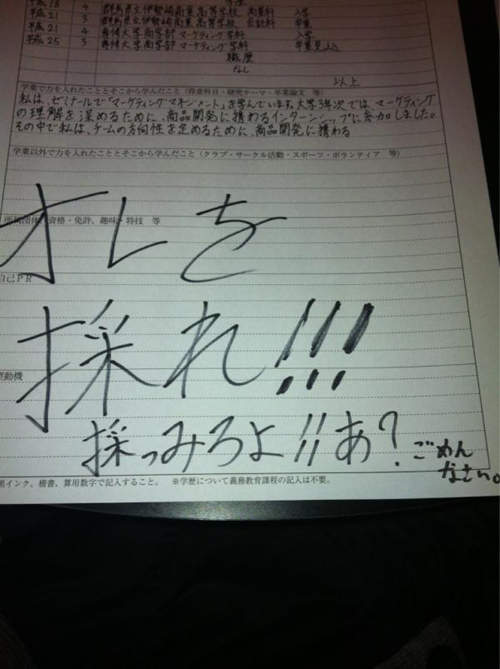 平成21 3 群馬県立伊勢崎商業高等学校 会計科 卒業
平成21 4 専修大学商学部 マーケティング学科 入学
平成25 3 専修大学商学部 マーケティング学科 卒業見込み
職歴
なし
以上
学業で力を入れたこととそこから学んだこと（得意科目・研究テーマ・卒業論文 等）
私は、ゼミナールで「マーケティングマネジメント」を学んでいます。大学3年次では、マーケティング
の理解を深めるために、商品開発に携わるインターンシップに参加しました。
その中で私は、チームの方向性を定めるために、商品開発に携わる
学業以外で力を入れたこととそこから学んだこと（クラブ・サークル活動・スポーツ・ボランティア 等）
オレを
資格・免許、趣味・特技 等
自己PR
採れ!!!
志望動機
採っみろよ!!あ?
ごめん
なさい。
黒インク、楷書、算用数字で記入すること。 ※学歴について義務教育課程の記入は不要。